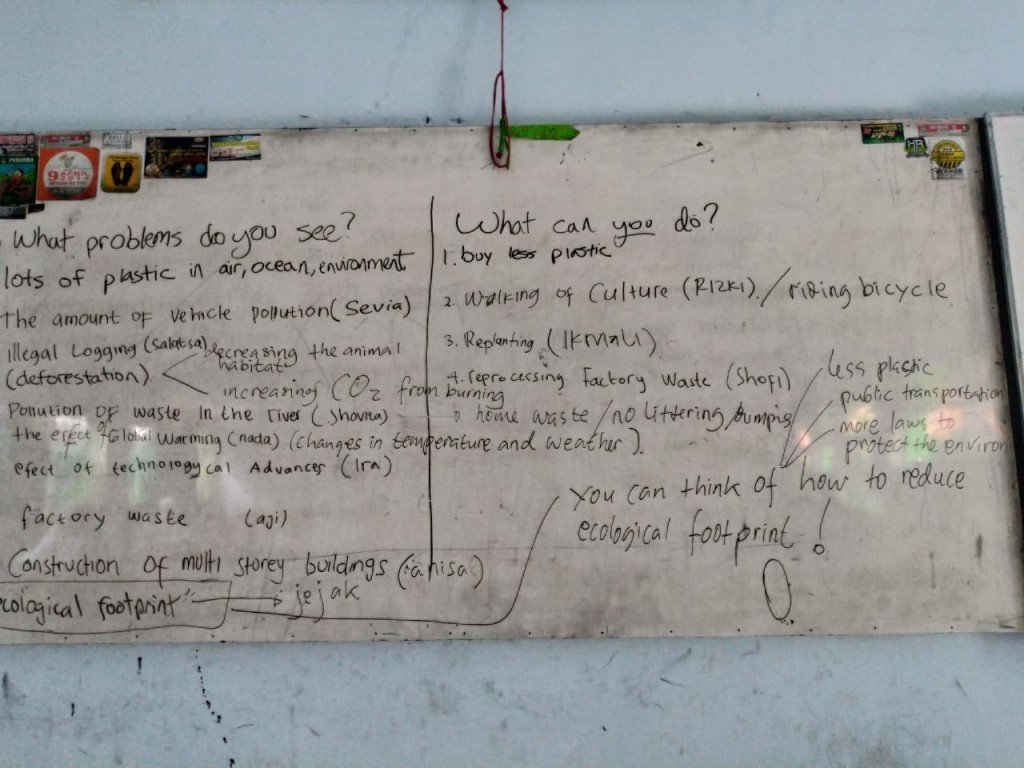 What problems do you see?
lots of plastic in air, ocean, environment
The amount of vehicle pollution (Sevia)
Illegal Logging (Salatsa) decreasing the animal habitat
(deforestation) increasing CO2 from burning
Pollution of waste in the river (Jhovita) → home waste / no littering/dumping
the efect of Global Warming (nada) (changes in temperature and weather).
efect of technologycal Advances (Ira)
factory waste (agi)
Construction of multi storey buildings
ecological footprint" → jejak
What can you do?
1. buy less plastic
2. Walking of Culture (RIZKI). / riding bicycle
3. Replanting (IKMAL)
4. reprocessing Factory Waste (Shofi)
less plastic
public transportation
more laws to
protect the environ
you can think of how to reduce
ecological footprint!